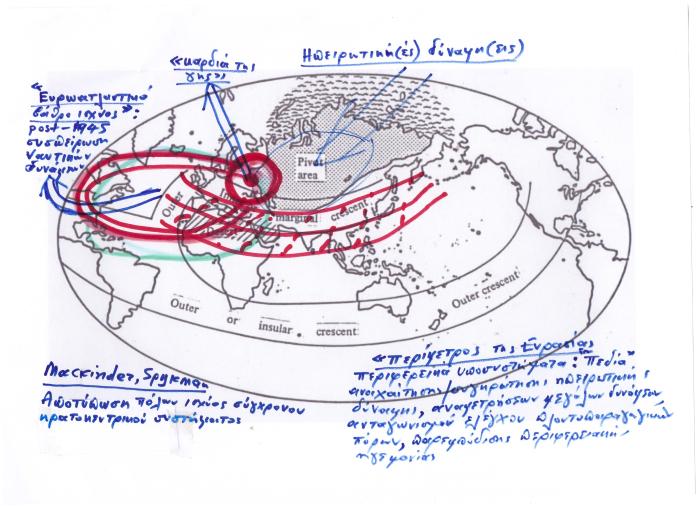 «καρδιά της
γης»
Ηπειρωτική(ές) δύναμη(εις)
«Ευρωατλαντικό
βάθρο ισχύος»:
post-1945
συσπείρωση
ναυτικών
δυνάμεων
Pivot
area
Outer
marginal crescent
Outer or insular crescent
Outer crescent
Mackinder, Spykman
Αποτύπωση πόλων ισχύος σύγχρονου
κρατοκεντρικού συστήματος
«περίμετρος της Ευρασίας»
περιφερειακά υποσυστήματα: "πεδία"
αναχαίτησης/συγκράτησης ηπειρωτικής
δύναμης, αναμετρήσεων μεγάλων δυνάμεων,
ανταγωνισμού ελέγχου πλουτοπαραγωγικών
πόρων, παρεμπόδισης περιφερειακής
ηγεμονίας